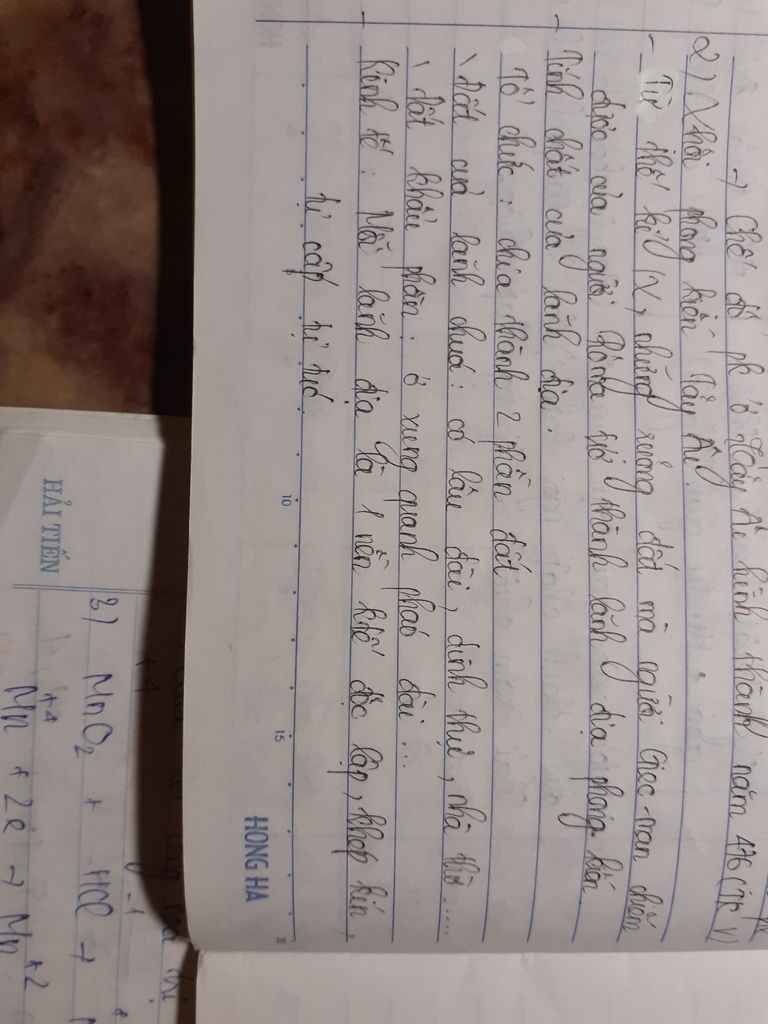 → Chế độ pk ở Tây Âu hình thành năm 476 (TK V)
2) Xã hội phong kiến Tây Âu
- Từ thế kỉ IX, những vương đất mà người Giec-man chiếm
được của người Rôma trở thành lãnh địa phong kiến
- Tính chất của lãnh địa.
Tổ chức: chia thành 2 phần đất
\ Đất của lãnh chúa: có lâu đài, dinh thự, nhà thờ....
\ Đất khẩu phần: ở xung quanh pháo đài...
- Kinh tế: Mỗi lãnh địa là 1 nền ktế độc lập, khép kín,
tự cấp tự túc
10
15
HONG HA
HẢI TIẾN
3) MnO₂ + HCl →
+4
Mn + 2e → Mn
+2